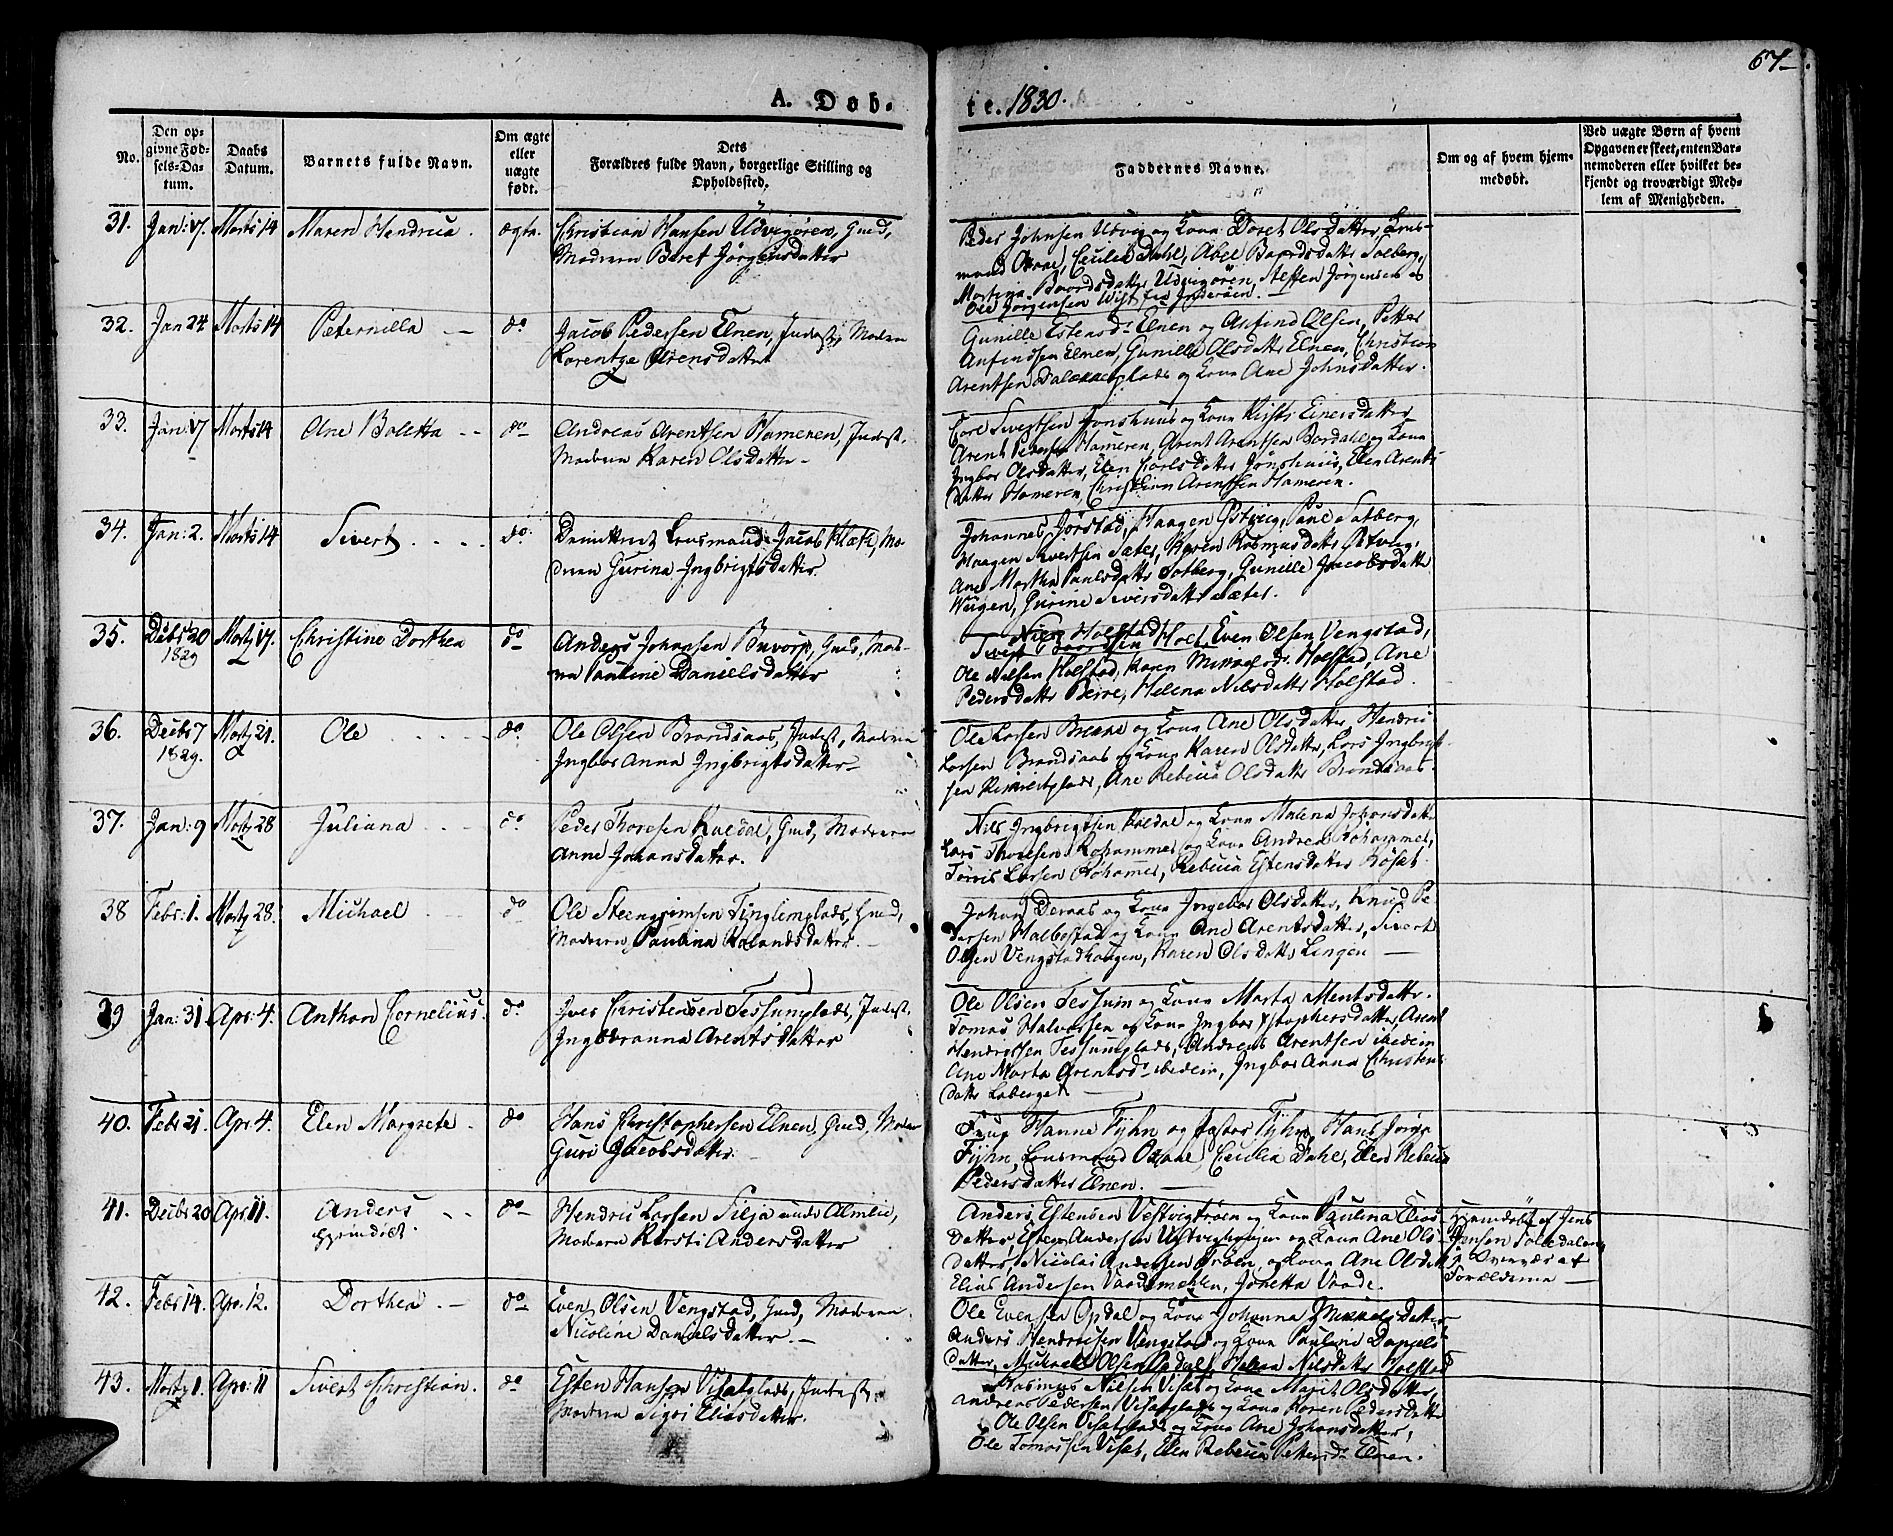 67
A. Døb-
te. 1830.
No.
Den op-
givne Fød-
sels-Da-
tum.
Daabs
Datum.
Barnets fulde Navn.
Om ægte
eller
uægte
født.
Dets
Forældres fulde Navn, borgerlige Stilling og
Opholdssted.
Faddernes Navne.
Om og af hvem hjem-
medøbt.
Ved uægte Børn af hvem
Opgaven er skeet, enten Bar-
nemoderen eller hvilket be-
kjendt og troværdigt Med-
lem af Menigheden.
31. Jan: 17. Marts 14 Maren Hendrica. ægte. Christian Hansen Udvigøren, Gmd,
Moderen Beret Jørgensdatter
Peder Johnsen Udvig og Kone Beret Olsdatter, Lens-
mand Cecilia Dahl, Abel Baardsdatter Solberg,
Baardsdatter Udvigøren, Steffen Jørgensen og
Ole Jørgensen Wist fra Inderøen.
32. Jan 24 Marts 14 Peternilla do Jacob Pedersen Elnen, Inderst, Moderen
Lorentze Arensdatter
Gunille Estensdr Elnen og Arfind Olsen, Petter
Arfindsen Elnen, Gunille Olsdatter Elnen, Christian
Arentsen plads og Kone Ane Johnsdatter.
33. Jan: 17 Marts 14 Ane Boletta do Andreas Arentsen Hameren, Inderst,
Moderen Karen Olsdatter
Sivertsen Jonshuus og Kone Einersdatter
Arent Pedersen Hameren, Arent Arentsen Bordal og Kone
Ingbor Olsdatter, Elen Carlsdatter Jonshuus, Elen Arents
datter Hameren, Christian Arentsen Hameren.
34. Jan: 2. Marts 14 Sivert do Lensmand Jacob Mo-
deren Gurina Ingbrigtsdatter
Johannes Jørstad, Haagen Østvig, Solberg,
Haagen Sivertsen Sæter, Karen Rasmusdatter Østvig,
Ane Martha Paulsdatter Solberg, Gunelle Jacobsdatter
Gurine Siversdatter Sæter.
35. Decbr 20
1829 Marts 17. Christine Dorthea do Anders Johansen Buvarp, Gmd, Mode-
Pauline Danielsdatter
Nils Holstad
Sivert Baardsen Holt, Even Olsen Vengstad,
Ole Nilsen Holstad, Karen Mikkelsdr Holstad, Ane
Pedersdatter Beire, Helena Nilsdatter Holstad.
36. Decbr 7
1829. Marts 21. Ole do Ole Olsen Brandsaas, Inderst, Moderen
Ingbor Anna Ingbrigtsdatter
Ole Larsen og Kone Ane Olsdatter, Hendric
Larsen Brandsaas og Kone Karen Olsdatter, Lars Ingbrigt-
sen plads, Ane Rebecca Olsdatter Brandsaas
37. Jan: 9 Marts 28 Juliana do Peder Thoresen Gmd, Moderen
Anne Johansdatter.
Nils Ingbrigtsen og Kone Malena Johansdatter
Lars Thoresen Rohammer og Kone Andrea Rohammer,
Larsen Rohammer, Rebecca Estensdatter Røset.
38 Febr: 1. Marts 28. Michael do Ole Steengrimsen Gmd,
Moderen Paulina Rolandsdatter.
Johan Deraas og Kone Ingebor Olsdatter, Knud Pe
dersen Halbostad og Kone Ane Arentsdatter, Sivert
Olsen Vengstadhaugen, Karen Olsdatter Lingen
39 Jan: 31 Apr: 4. Anthon Cornelius. do Iver Christensen Tessumplads, Inderst,
Ingboranna Arentsdatter
Ole Olsen Tessum og Kone Marta Mentsdatter.
Tomas Halvorsen og Kone Ingbor Xstophersdatter, Arent
Hendrichsen Tessumplads, Andreas Arentsen ibidem
Ane Marta Arentsdr ibidem, Ingbor Anna Christens
datter
40. Febr 21. Apr. 4. Elen Margrete do Hans Christophersen Elnen, Gmd, Moder
Guri Jacobsdatter
Frue Hanne Fyhn og Pastor Fyhn, Hans
Fyhn, Lensmand Cecilia Dahl, Elen Rebecca
Pedersdatter Elnen.
41. Decbr 20 Apr. 11. Anders
Hjemdøbt do Hendric Larsen Silja under Almlie,
Moderen Kirsti Andersdatter
Anders Estensen Vestvigtrøen og Kone Paulina Elias
datter, Esten Andersen og Kone Ane Ols-
datter, Nicolai Andersen Trøen, og Kone Ane Olsdatter
Elias Andersen Vaademelen, Joretta Vaade.
Hjemdøbt af Jens
Jensen
i Overvær af
Forældrene
42. Febr 14. Apr: 12. Dorthea do Even Olsen Vengstad, Gmd, Moderen
Nicoline Danielsdatter
Ole Evensen Opdal og Kone Johanna Mikkelsdatter
Anders Hendricsen Vengstad og Kone Pauline Daniels
datter, Michael Olsen Opdal, Helena Nilsdatter Holstad
43. Marts 1. Apr: 11 Sivert Christian. do Esten Hansen Visetplads, Inderst,
Moderen Sigri Eliasdatter.
Rasmus Nielsen Viset og Kone Marit Olsdatter,
Andreas Pedersen Visetplads og Kone Karen Pedersdatter
Ole Olsen Visetplads og Kone Ane Johansdatter,
Ole Tomassen Viset, Elen Rebecca Pettersdr Elnen.